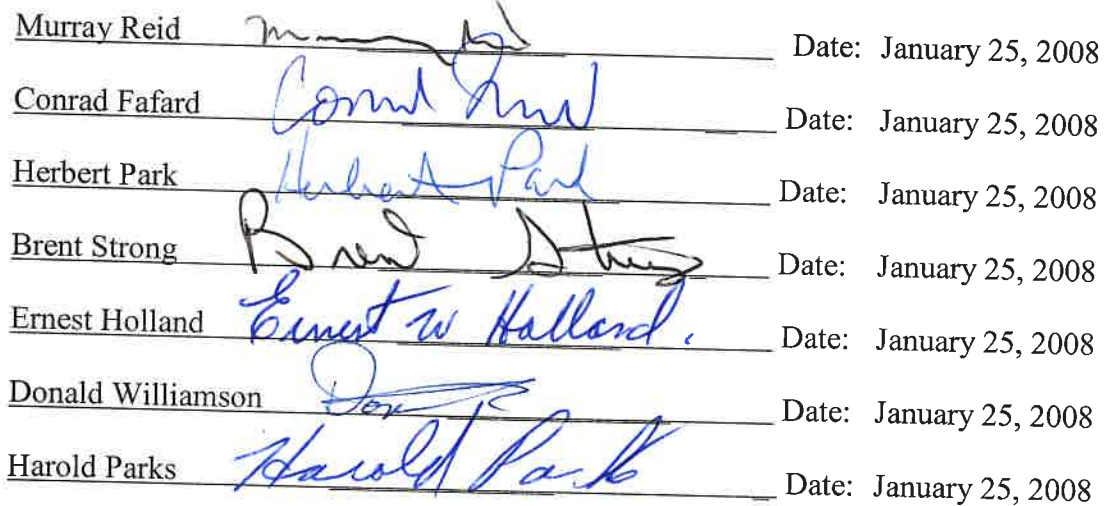 Murray Reid Date: January 25, 2008
Conrad Fafard Date: January 25, 2008
Herbert Park Herbert Park Date: January 25, 2008
Brent Strong Brent Strong Date: January 25, 2008
Ernest Holland Ernest W Holland. Date: January 25, 2008
Donald Williamson Don Date: January 25, 2008
Harold Parks Harold Parks Date: January 25, 2008